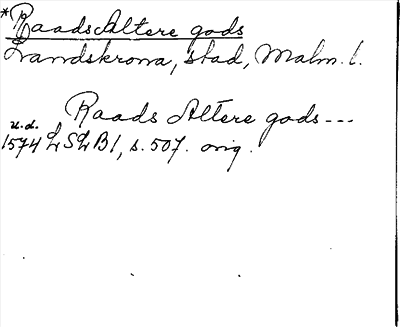 *Raads Altere gods
Landskrona, stad, Malm. l.
Raads Altere gods---
u.d.
1574 LSLB1, s. 507. orig.